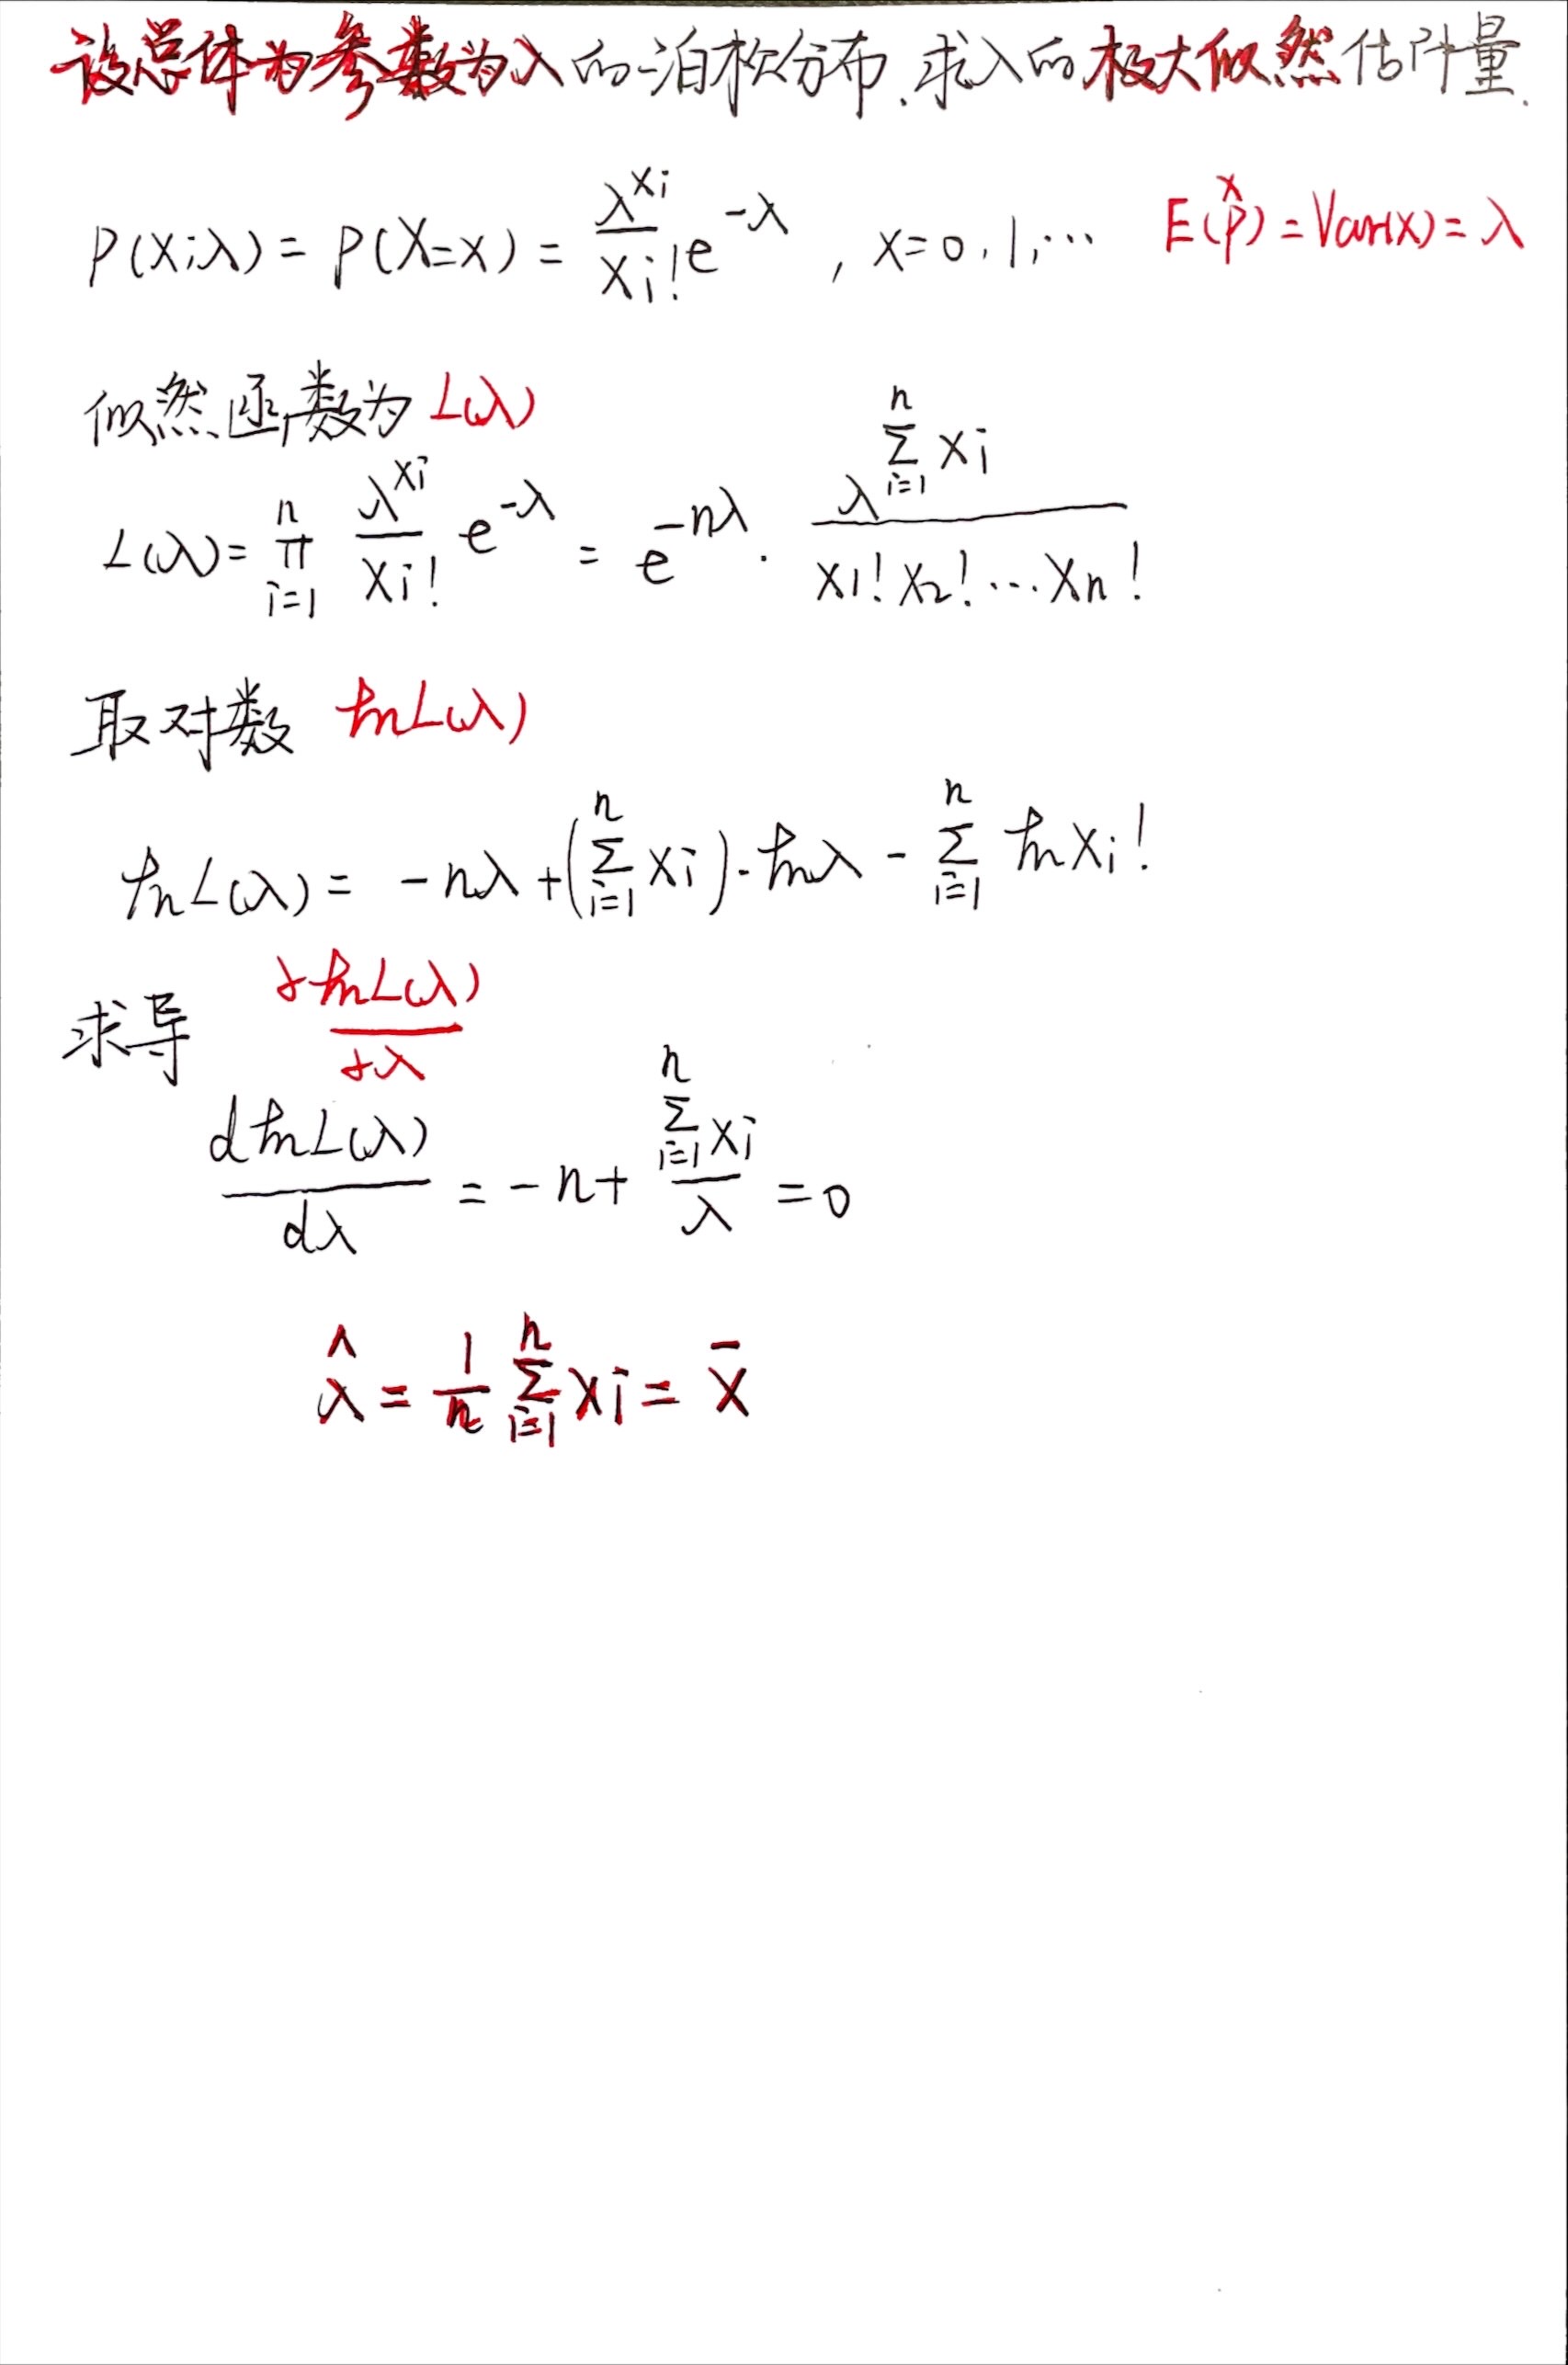 设总体为参数为λ的泊松分布.求λ的极大似然估计量.
P(Xi;λ) = P(X=x) = λ^xi / xi! e^-λ , x=0,1,… E(x) = Var(x) = λ
似然函数为 L(λ)
L(λ) = ∏_{i=1}^{n} λ^xi / xi! e^-λ = e^-nλ · λ^{∑_{i=1}^{n} xi} / x1! x2! … xn!
取对数 lnL(λ)
lnL(λ) = -nλ + (∑_{i=1}^{n} xi) · lnλ - ∑_{i=1}^{n} lnxi!
求导 dlnL(λ) / dλ
dlnL(λ) / dλ = -n + ∑_{i=1}^{n} xi / λ = 0
λ̂ = 1/n ∑_{i=1}^{n} xi = x̄